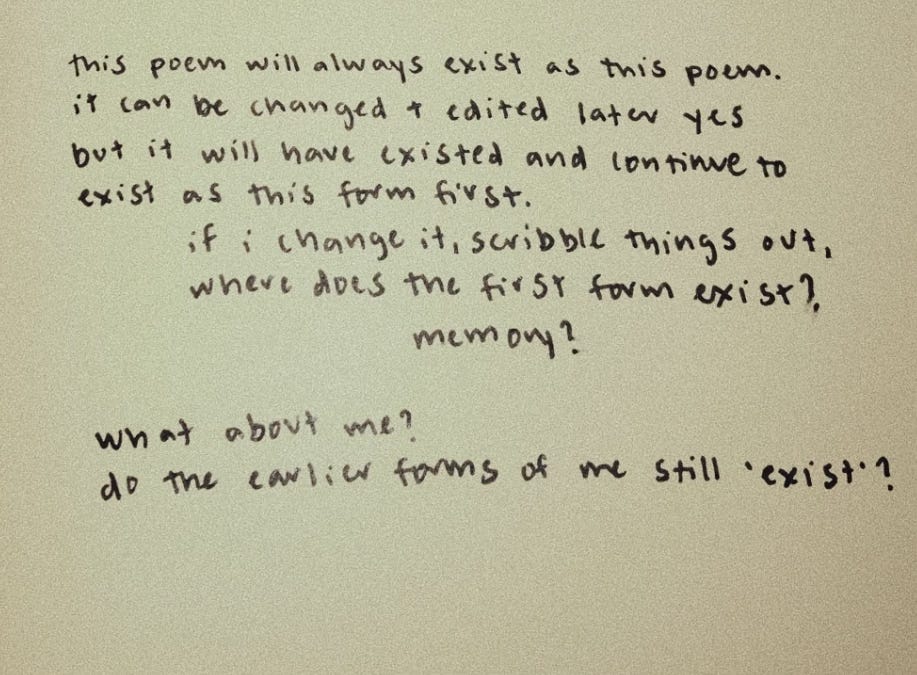 this poem will always exist as this poem.
it can be changed + edited later yes
but it will have existed and continue to
exist as this form first.
if i change it, scribble things out,
where does the first form exist?
memory?
what about me?
do the earlier forms of me still 'exist'?